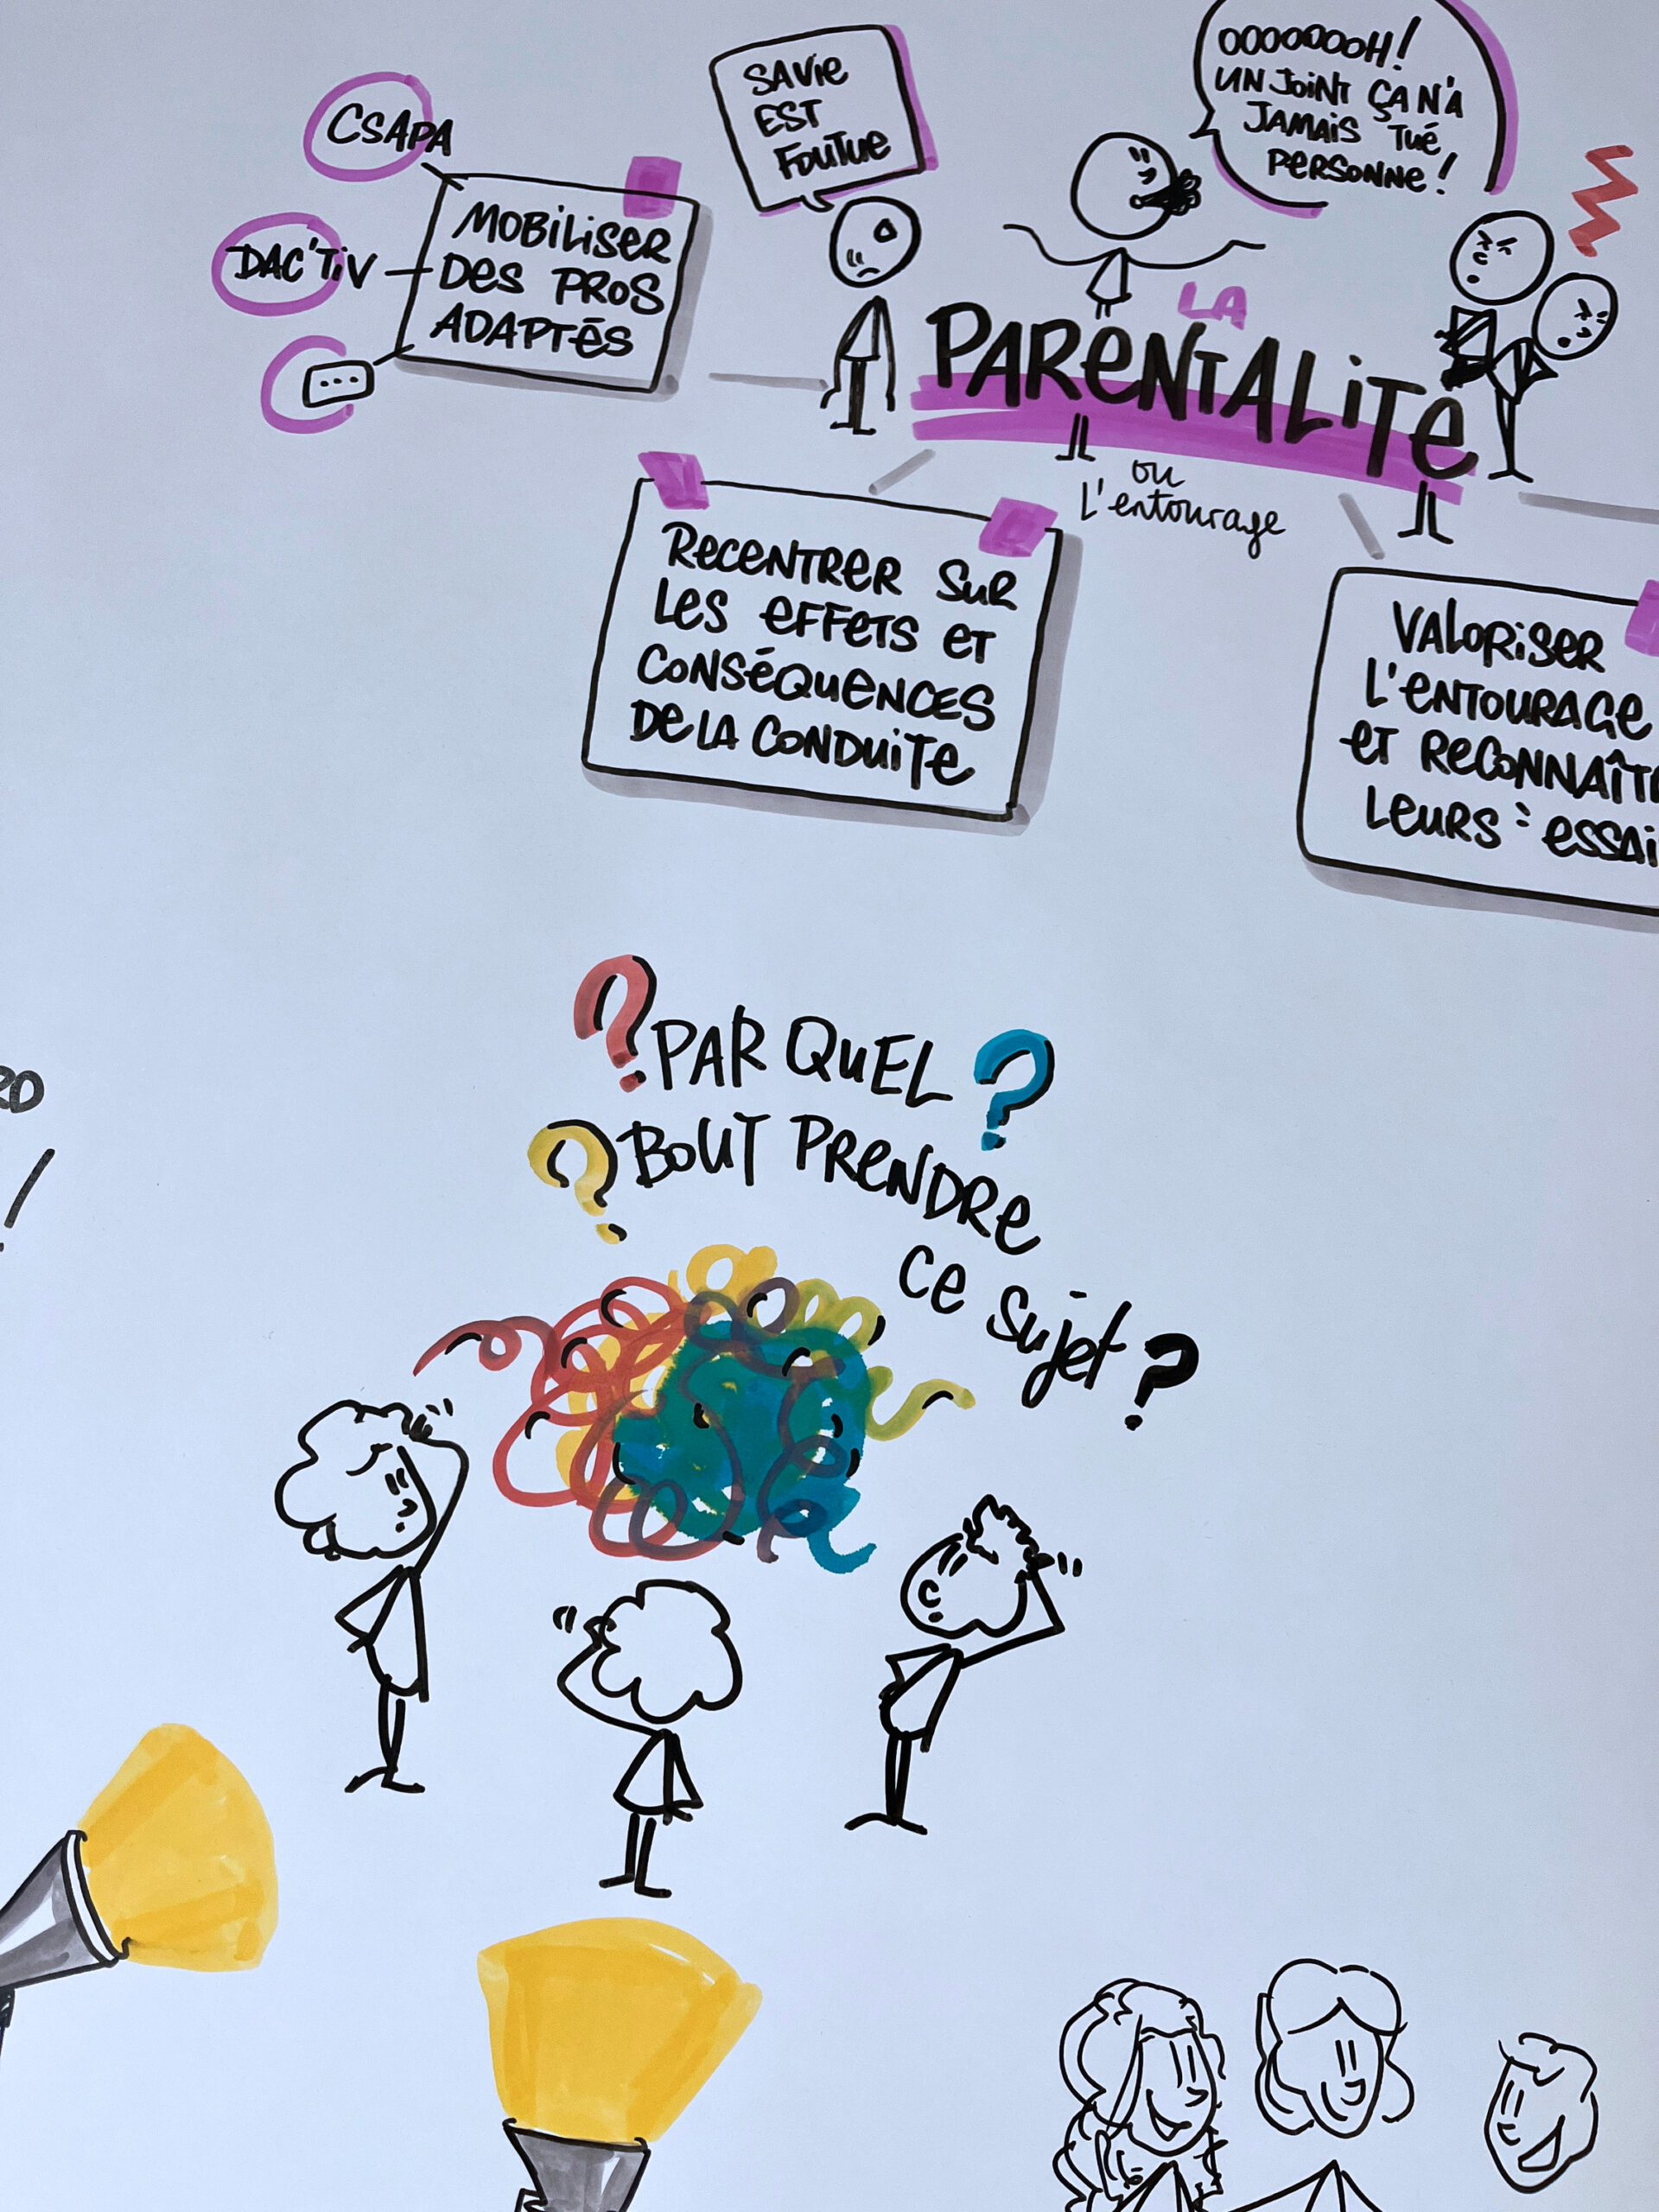 CSAPA
DAC'TIV
...
MOBILISER
DES PROS
ADAPTÉS
SA VIE
EST
FOUTUE
OOOOOOOH!
UN JOINT ÇA N'A
JAMAIS TUÉ
PERSONNE!
LA
PARENTALITÉ
ou
L'entourage
RECENTRER SUR
LES EFFETS ET
CONSÉQUENCES
DE LA CONDUITE
VALORISER
L'ENTOURAGE
ET RECONNAÎT
LEURS : ESSAI
? PAR QUEL ?
? BOUT PRENDRE
CE SUJET ?
!